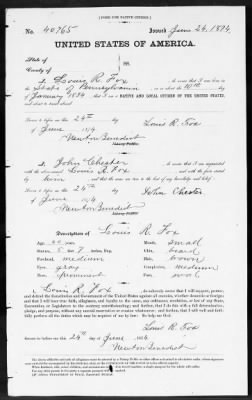 [FORM FOR NATIVE CITIZEN.]
No. 40765 Issued June 24, 1874
UNITED STATES OF AMERICA.
State of
County of ss.
I, Louis R. Fox, do swear that I was born in the
State of Pennsylvania on or about the 10th day
of January 1834 that I am a NATIVE AND LOYAL CITIZEN OF THE UNITED STATES,
and about to travel abroad.
Louis R. Fox
Sworn to before me, this 24th
day of June 1874
Newton Benedict
Notary Public.
I, John Chester
with the above-named Louis R. Fox
John Chester
Sworn to before me, this 24th
day of June 1874
Newton Benedict
Notary Public.
Description of Louis R. Fox
Age: 40 years Mouth: small
Stature: 5 feet 7 inches, Eng. Chin: beard
Forehead: medium Hair: brown
Eyes: gray Complexion: medium
Nose: prominent Face:
I, Louis R. Fox, do solemnly swear that I will support, protect,
and defend the Constitution and Government of the United States against all enemies, whether domestic or foreign;
and that I will bear true faith, allegiance, and loyalty to the same, any ordinance, resolution, or law of any State,
Convention, or Legislature to the contrary notwithstanding; and further, that I do this with a full determination,
pledge, and purpose, without any mental reservation or evasion whatsoever; and further, that I will well and faith-
fully perform all the duties which may be required of me by law: So help me God.
Louis R. Fox
Sworn to before me, this 24th day of June 1874
Newton Benedict